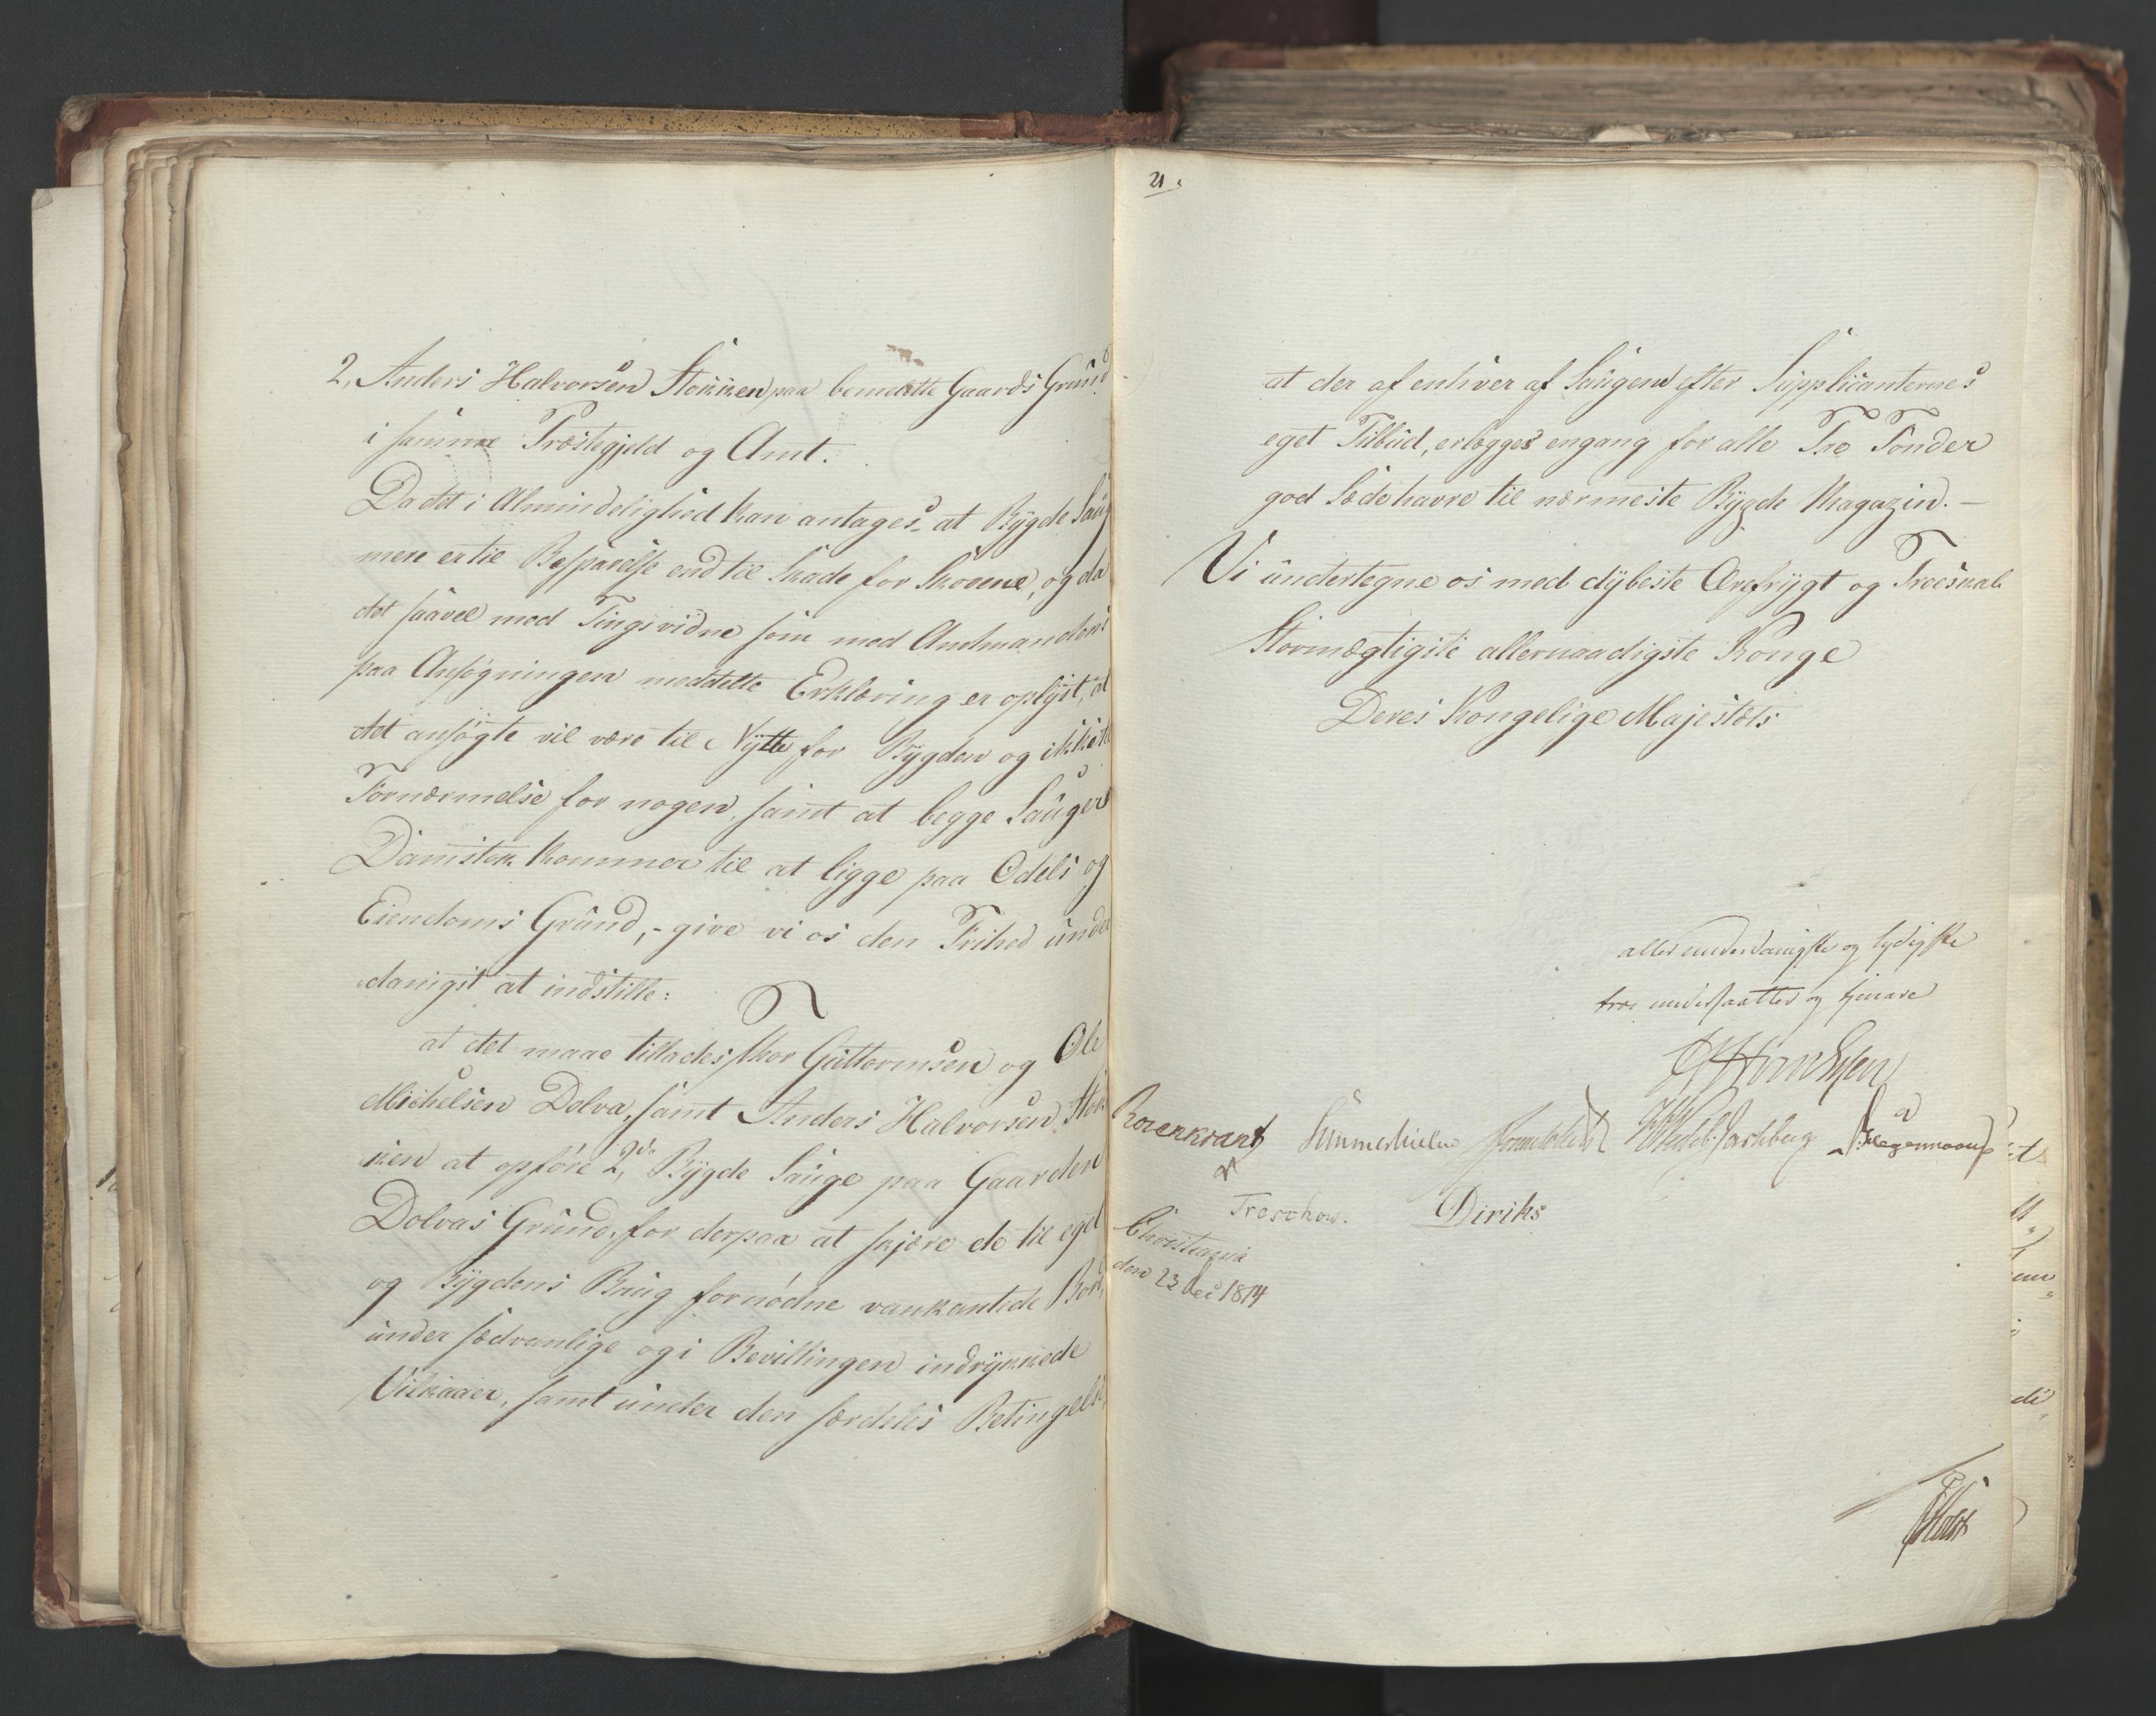 2, Anders Halvorsen Stokken paa bemeldte Gaards Grund
i samme Præstegjeld og Amt.
Da det i Almindelighed kan antages at Bygde Saug
mere er til Besparelse end til Skade for Skovene, og da
det saavel med Tingsvidne som med Amtmandens
paa Ansøgningen meddelte Erklæring er oplyst, at
det ansøgte vil være til Nytte for Bygden og ikke til
Fornærmelse for nogen, samt at begge Saugers
Damstok kommer til at ligge paa Odels og
Eiendoms Grund, - give vi os den Frihed under
danigst at indstille:
at det maae tillades Thor Guttormsen og Ole
Michelsen Dolva, samt Anders Halvorsen Stok
ken at opføre 2de Bygde Sauge paa Gaarden
Dolvas Grund, for derpaa at skjære de til eget
og Bygdens Brug fornødne vankantede Bord,
under sædvanlige og i Bevillingen indrykkede
Vilkaaer, samt under den særdeles Betingelse,
21.
at der af enhver af Saugene efter Supplicanternes
eget Tilbud, erlægges engang for alle Tre Tønder
god Sædehavre til nærmeste Bygde Magazin. -
Vi undertegne os med dybeste Ærefrygt og Troeskab
Stormægtigste allernaadigste Konge
Deres Kongelige Majestæts
allerunderdanigste og lydigste
troe undersaatter og tjenere
Rosenkrantz Sommerhielm Wedel Jarlsberg Hegermann
Treschow. Diriks
Christiania
den 23 Dec 1814
Holst